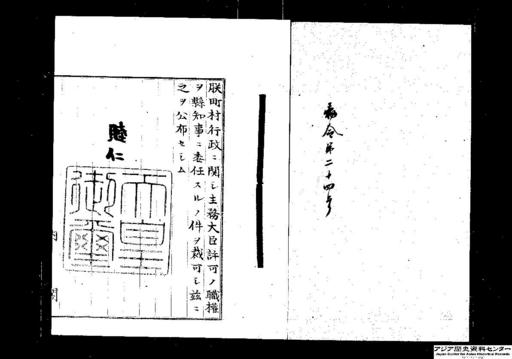 勅令第二十四号
朕町村行政ニ関シ主務大臣許可ノ職権
ヲ縣知事ニ委任スルノ件ヲ裁可シ茲ニ
之ヲ公布セシム
睦仁
天皇御璽
内閣
アジア歴史資料センター
Japan Center for Asian Historical Records